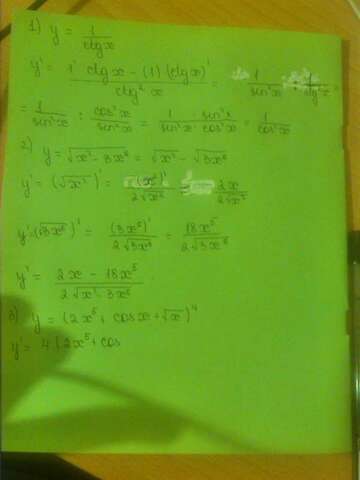 1) y = 1/ctgx
y' = (1' ctgx - (1)(ctgx)')/ctg²x = 1/sin²x : 1/ctg²x =
= 1/sin²x : cos²x/sin²x = (1 · sin²x)/(sin²x · cos²x) = 1/cos²x
2) y = √(x² - 3x⁶) = √x² - √3x⁶
y' = (√x²)' = (x²)'/(2√x²) = 2x/(2√x²)
y' = (√3x⁶)' = (3x⁶)'/(2√3x⁶) = 18x⁵/(2√3x⁶)
y' = (2x - 18x⁵)/(2√(x² - 3x⁶))
3) y = (2x⁵ + cosx + √x)⁴
y' = 4(2x⁵ + cos